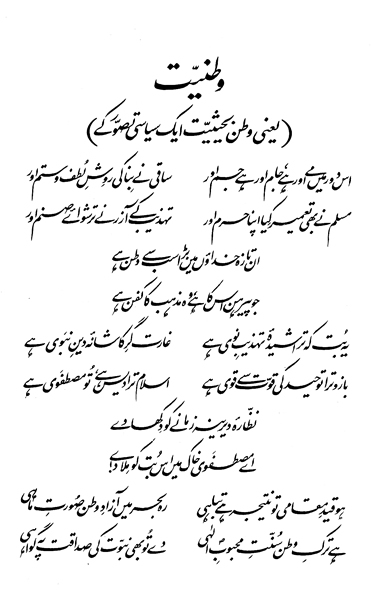 وطنیّت
(یعنی وطن بحیثیّت ایک سیاسی تصوّر کے)
اس دور میں مے اور ہے، جام اور ہے جم اور ساقی نے بِنا کی روشِ لُطف و ستم اور
مسلم نے بھی تعمیر کِیا اپنا حرم اور تہذیب کے آزر نے ترشوائے صنم اور
ان تازہ خداؤں میں بڑا سب سے وطن ہے
جو پیرہن اس کا ہے، وہ مذہب کا کفن ہے
یہ بُت کہ تراشیدۂ تہذیبِ نوی ہے غارت گرِ کاشانۂ دینِ نبَوی ہے
بازو ترا توحید کی قوّت سے قوی ہے اسلام ترا دیس ہے، تُو مصطفَوی ہے
نظّارۂ دیرینہ زمانے کو دِکھا دے
اے مصطفَوی خاک میں اس بُت کو ملا دے!
ہو قیدِ مقامی تو نتیجہ ہے تباہی رہ بحر میں آزادِ وطن صُورتِ ماہی
ہے ترکِ وطن سُنّتِ محبوبؐ الٰہی دے تُو بھی نبوّت کی صداقت پہ گواہی